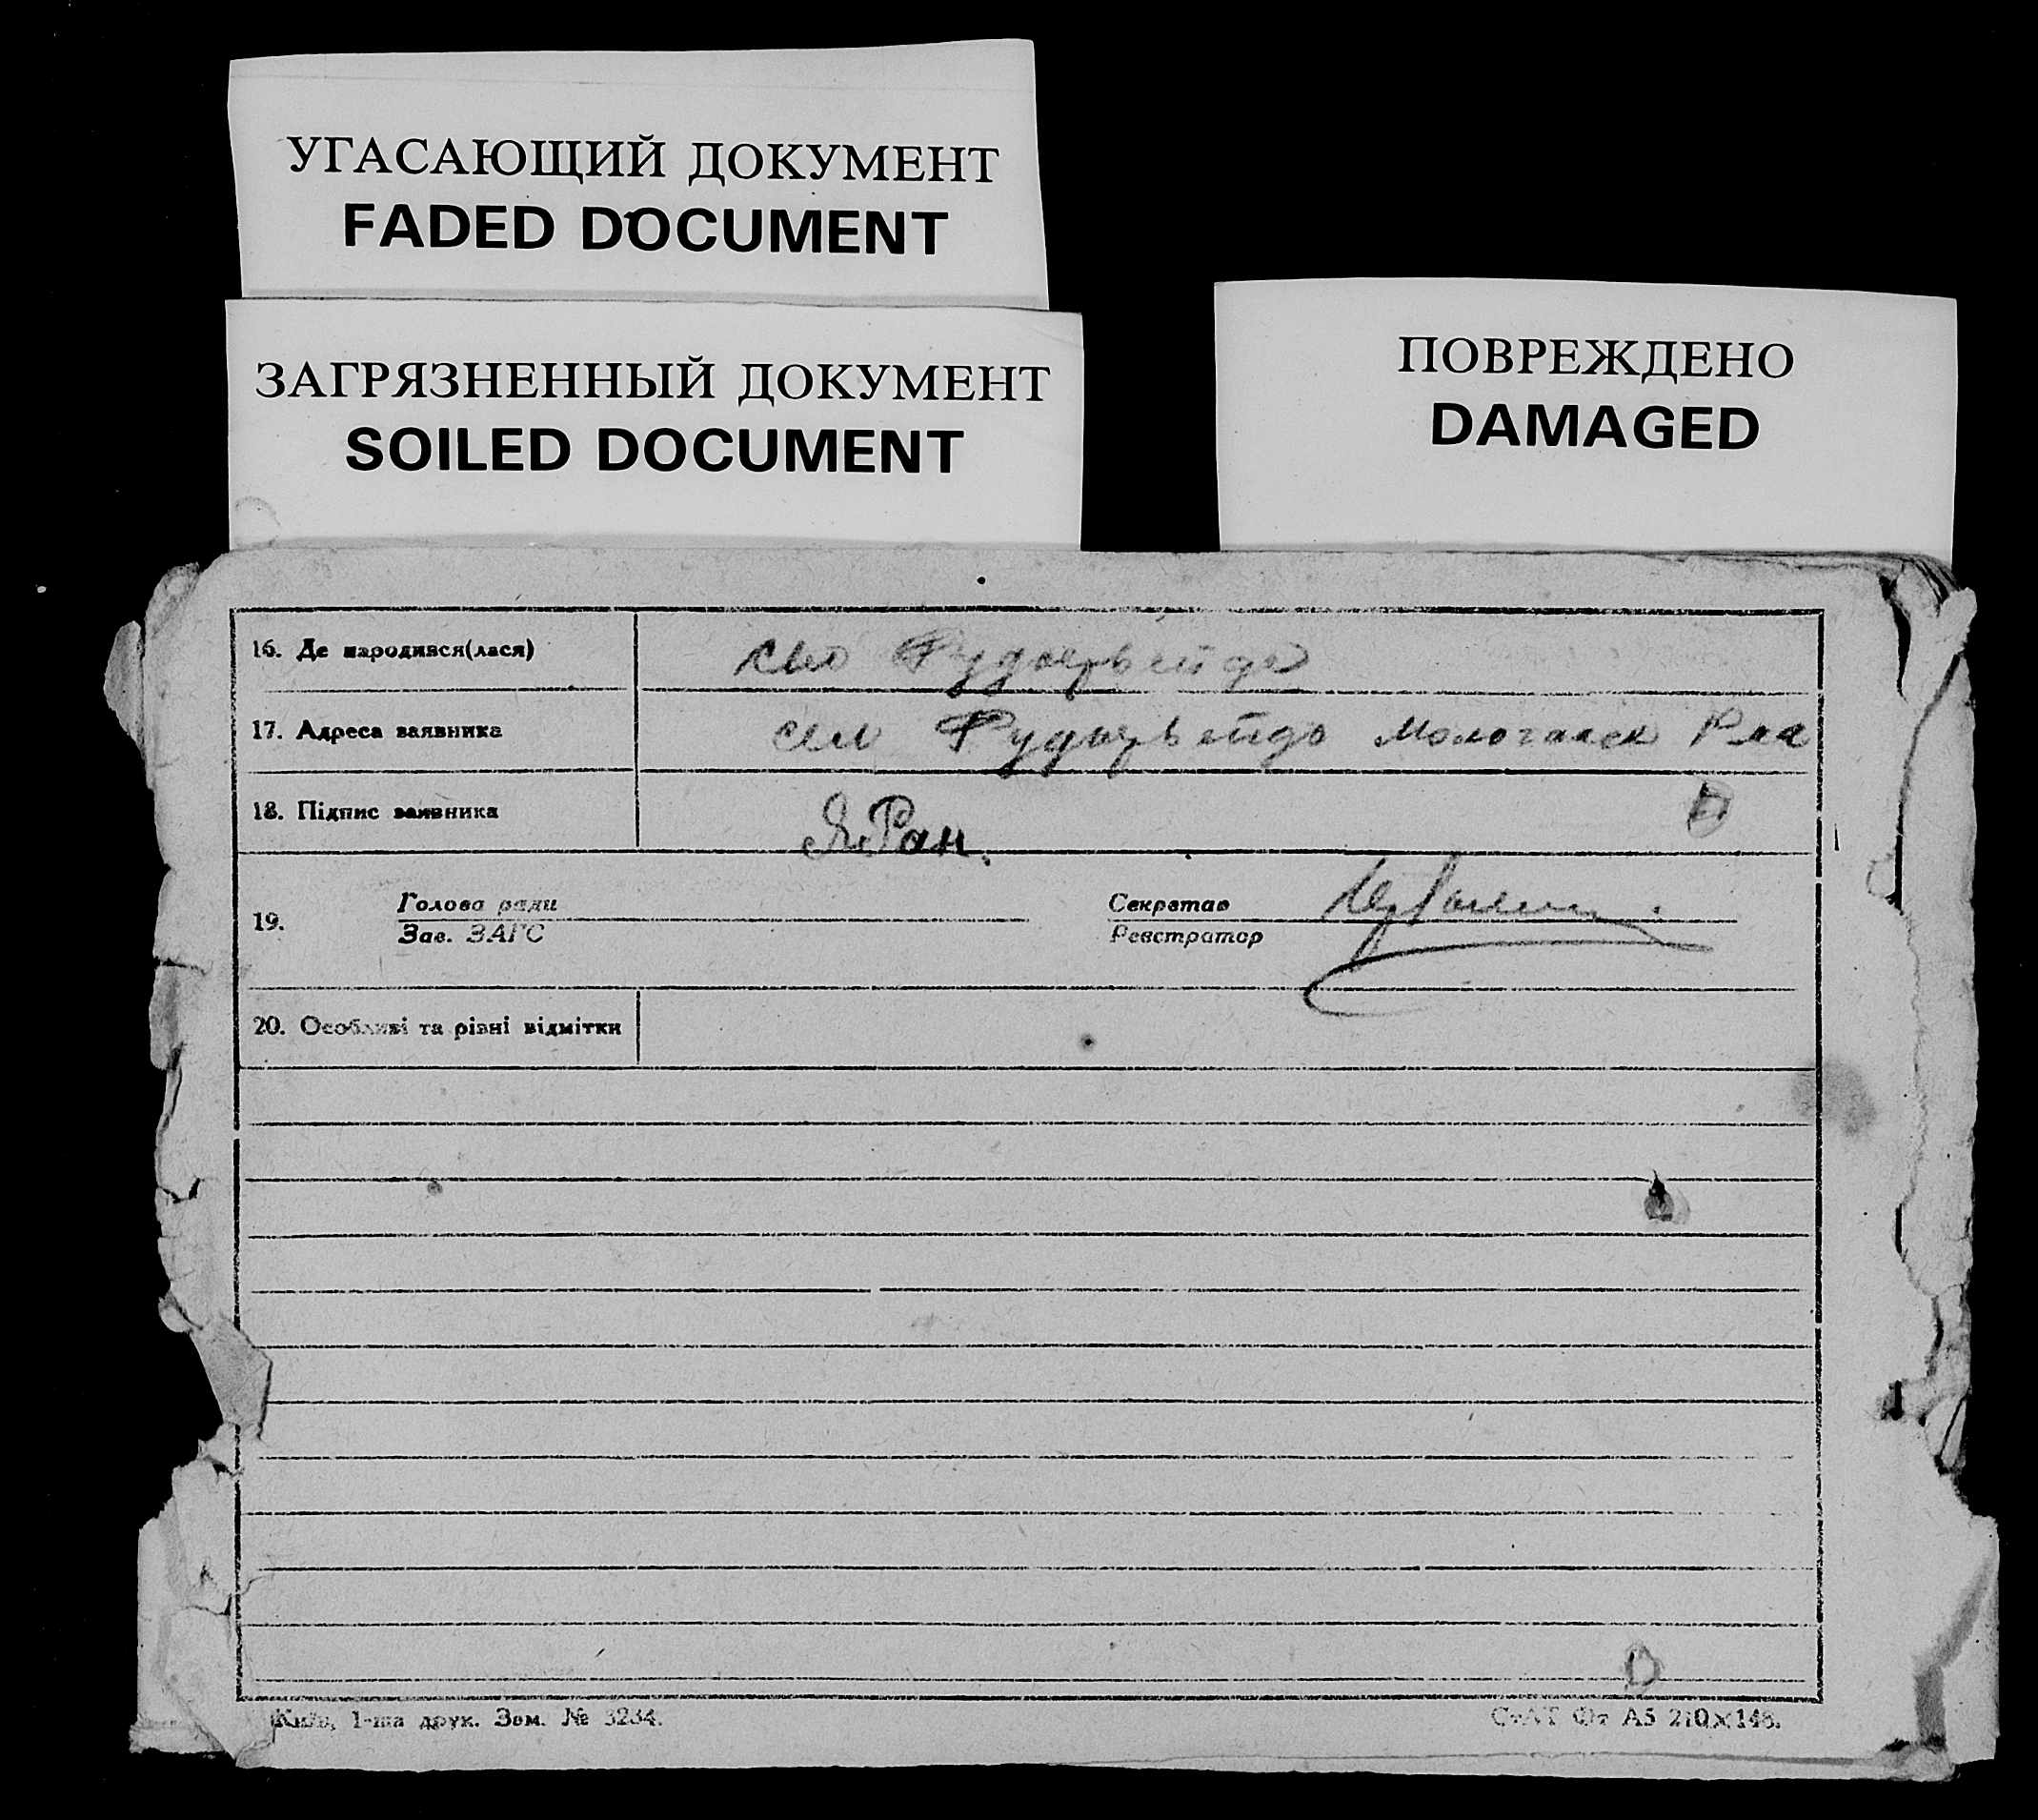 УГАСАЮЩИЙ ДОКУМЕНТ
FADED DOCUMENT
ЗАГРЯЗНЕННЫЙ ДОКУМЕНТ
SOILED DOCUMENT
ПОВРЕЖДЕНО
DAMAGED
16. Де народився(лася)
17. Адреса заявника
18. Підпис заявника
19. Голова ради Секретар
Зав. ЗАГС Реєстратор
20. Особливі та різні відмітки
Київ, 1-ша друк. Зам. № 3234.
А5 210×148.